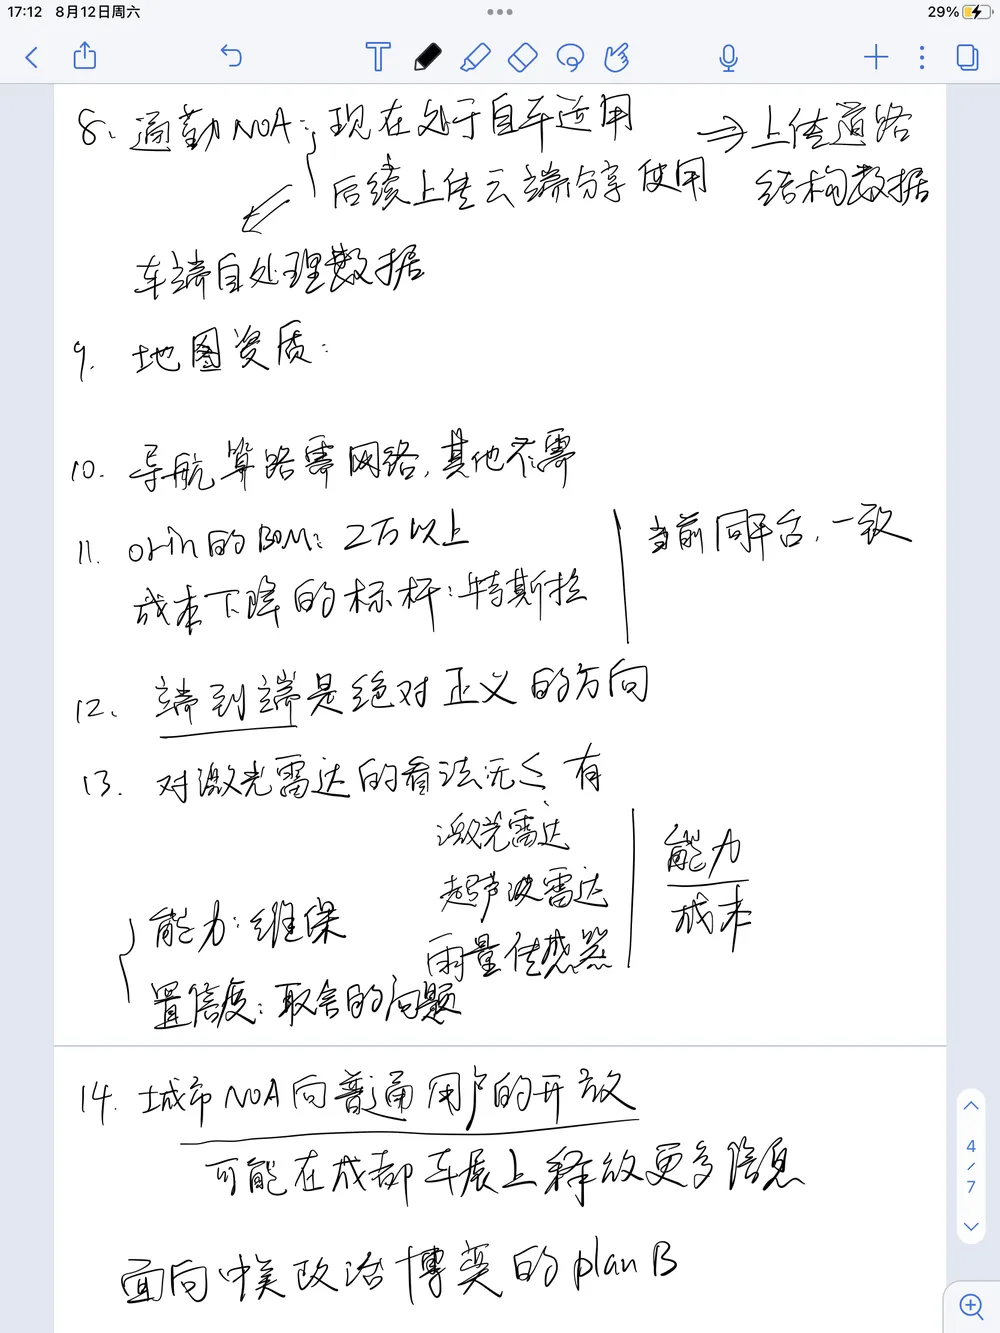 17:12 8月12日周六
29%
8、通勤NOA: 现在处于自车适用 ⇒ 上传道路
后续上传云端分享使用 结构数据
车端自处理数据
9. 地图资质:
10. 导航算路需网络, 其他不需
11. orin的BOM: 2万以上 当前同平台, 一致
成本下降的标杆: 特斯拉
12、端到端是绝对正义的方向
13. 对激光雷达的看法 有
激光雷达
超声波雷达
雨量传感器
能力
成本
能力: 维保
置信度: 取舍的问题
14. 城市NOA向普通用户的开放
可能在成都车展上释放更多信息
面向中美政治博弈的plan B
4
7